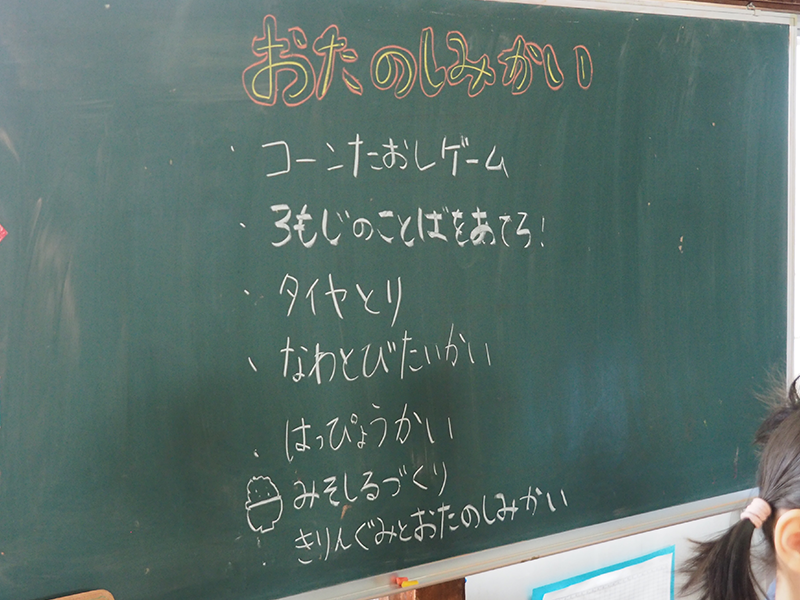 おたのしみかい
・コーンたおしゲーム
・3もじのことばをあてろ!
・タイヤとり
・なわとびたいかい
・はっぴょうかい
みそしるづくり
・きりんぐみとおたのしみかい